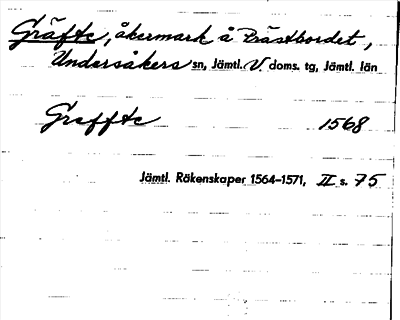 Gräfte, åkermark å Prästbordet,
Undersåkers sn, Jämtl. V. doms. tg, Jämtl. län
Greffte 1568
Jämtl. Räkenskaper 1564–1571, II s. 75